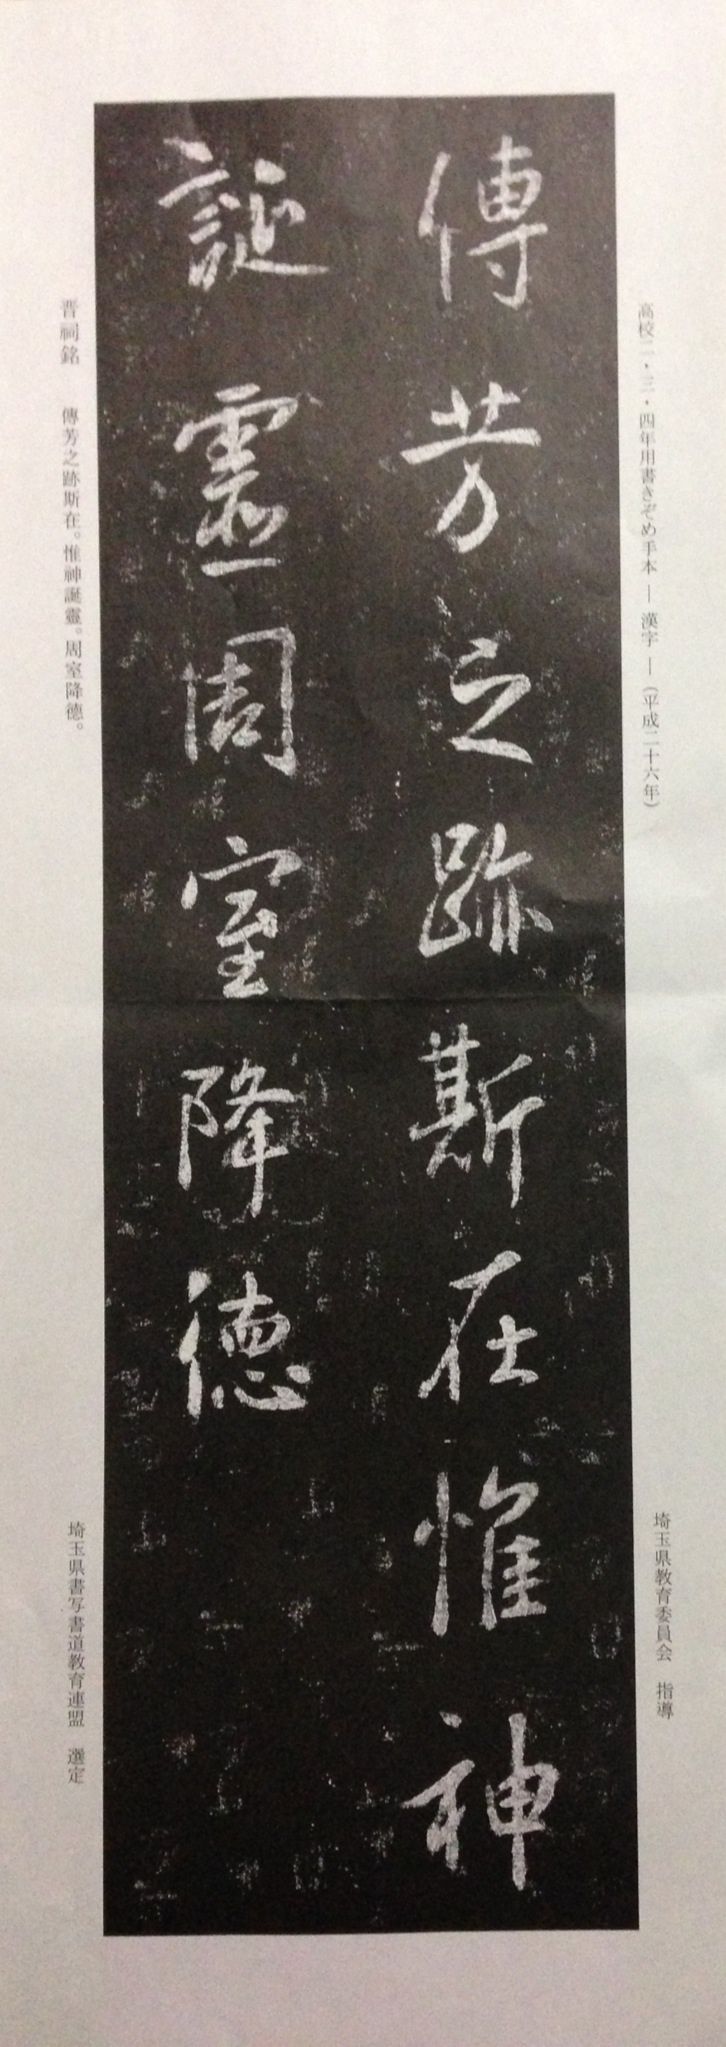 高校二・三・四年用書きぞめ手本 ― 漢字 ―（平成二十六年）
埼玉県教育委員会 指導
傳芳之跡斯在惟神
誕靈周室降德
晋祠銘 傳芳之跡斯在。惟神誕靈。周室降德。
埼玉県書写書道教育連盟 選定